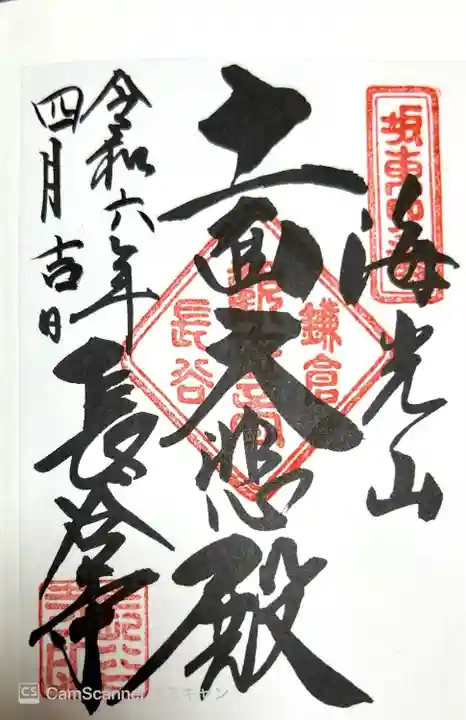 坂東四番
海光山
十一面大悲殿
鎌倉
長谷
令和六年
四月吉日
長谷寺
CS CamScanner でスキャン